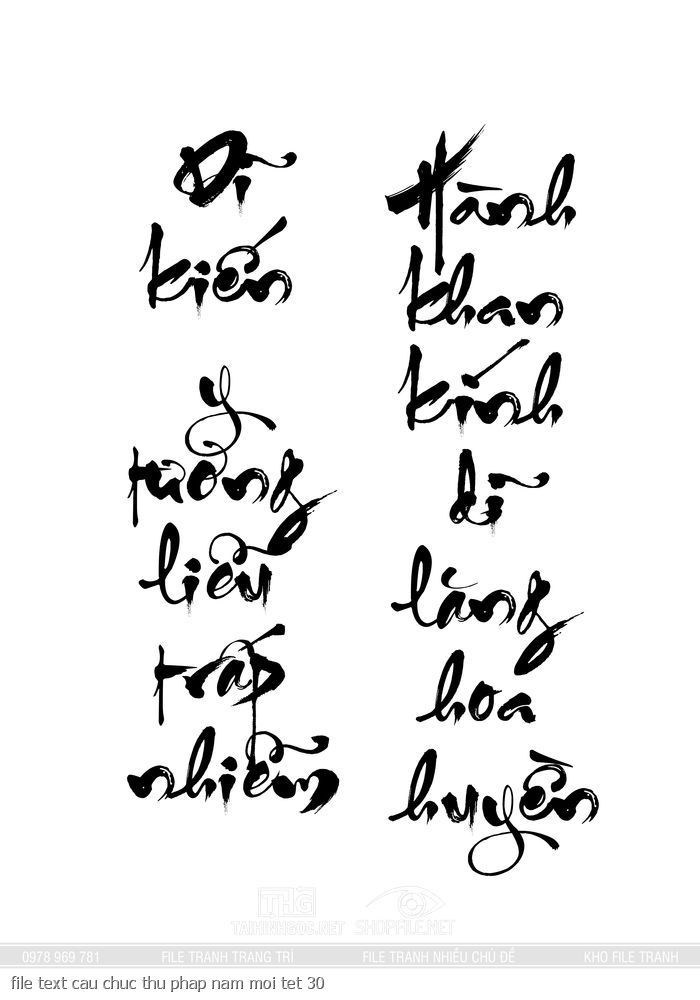 Dĩ
kiến
y
tưởng
liễu
trấp
nhiễm
Hành
khan
kính
dĩ
lăng
hoa
huyền
THG
TAIHINHGOC.NET SHOPFILE.NET
0978 969 781 FILE TRANH TRANG TRÍ FILE TRANH NHIỀU CHỦ ĐỀ KHO FILE TRANH
file text cau chuc thu phap nam moi tet 30